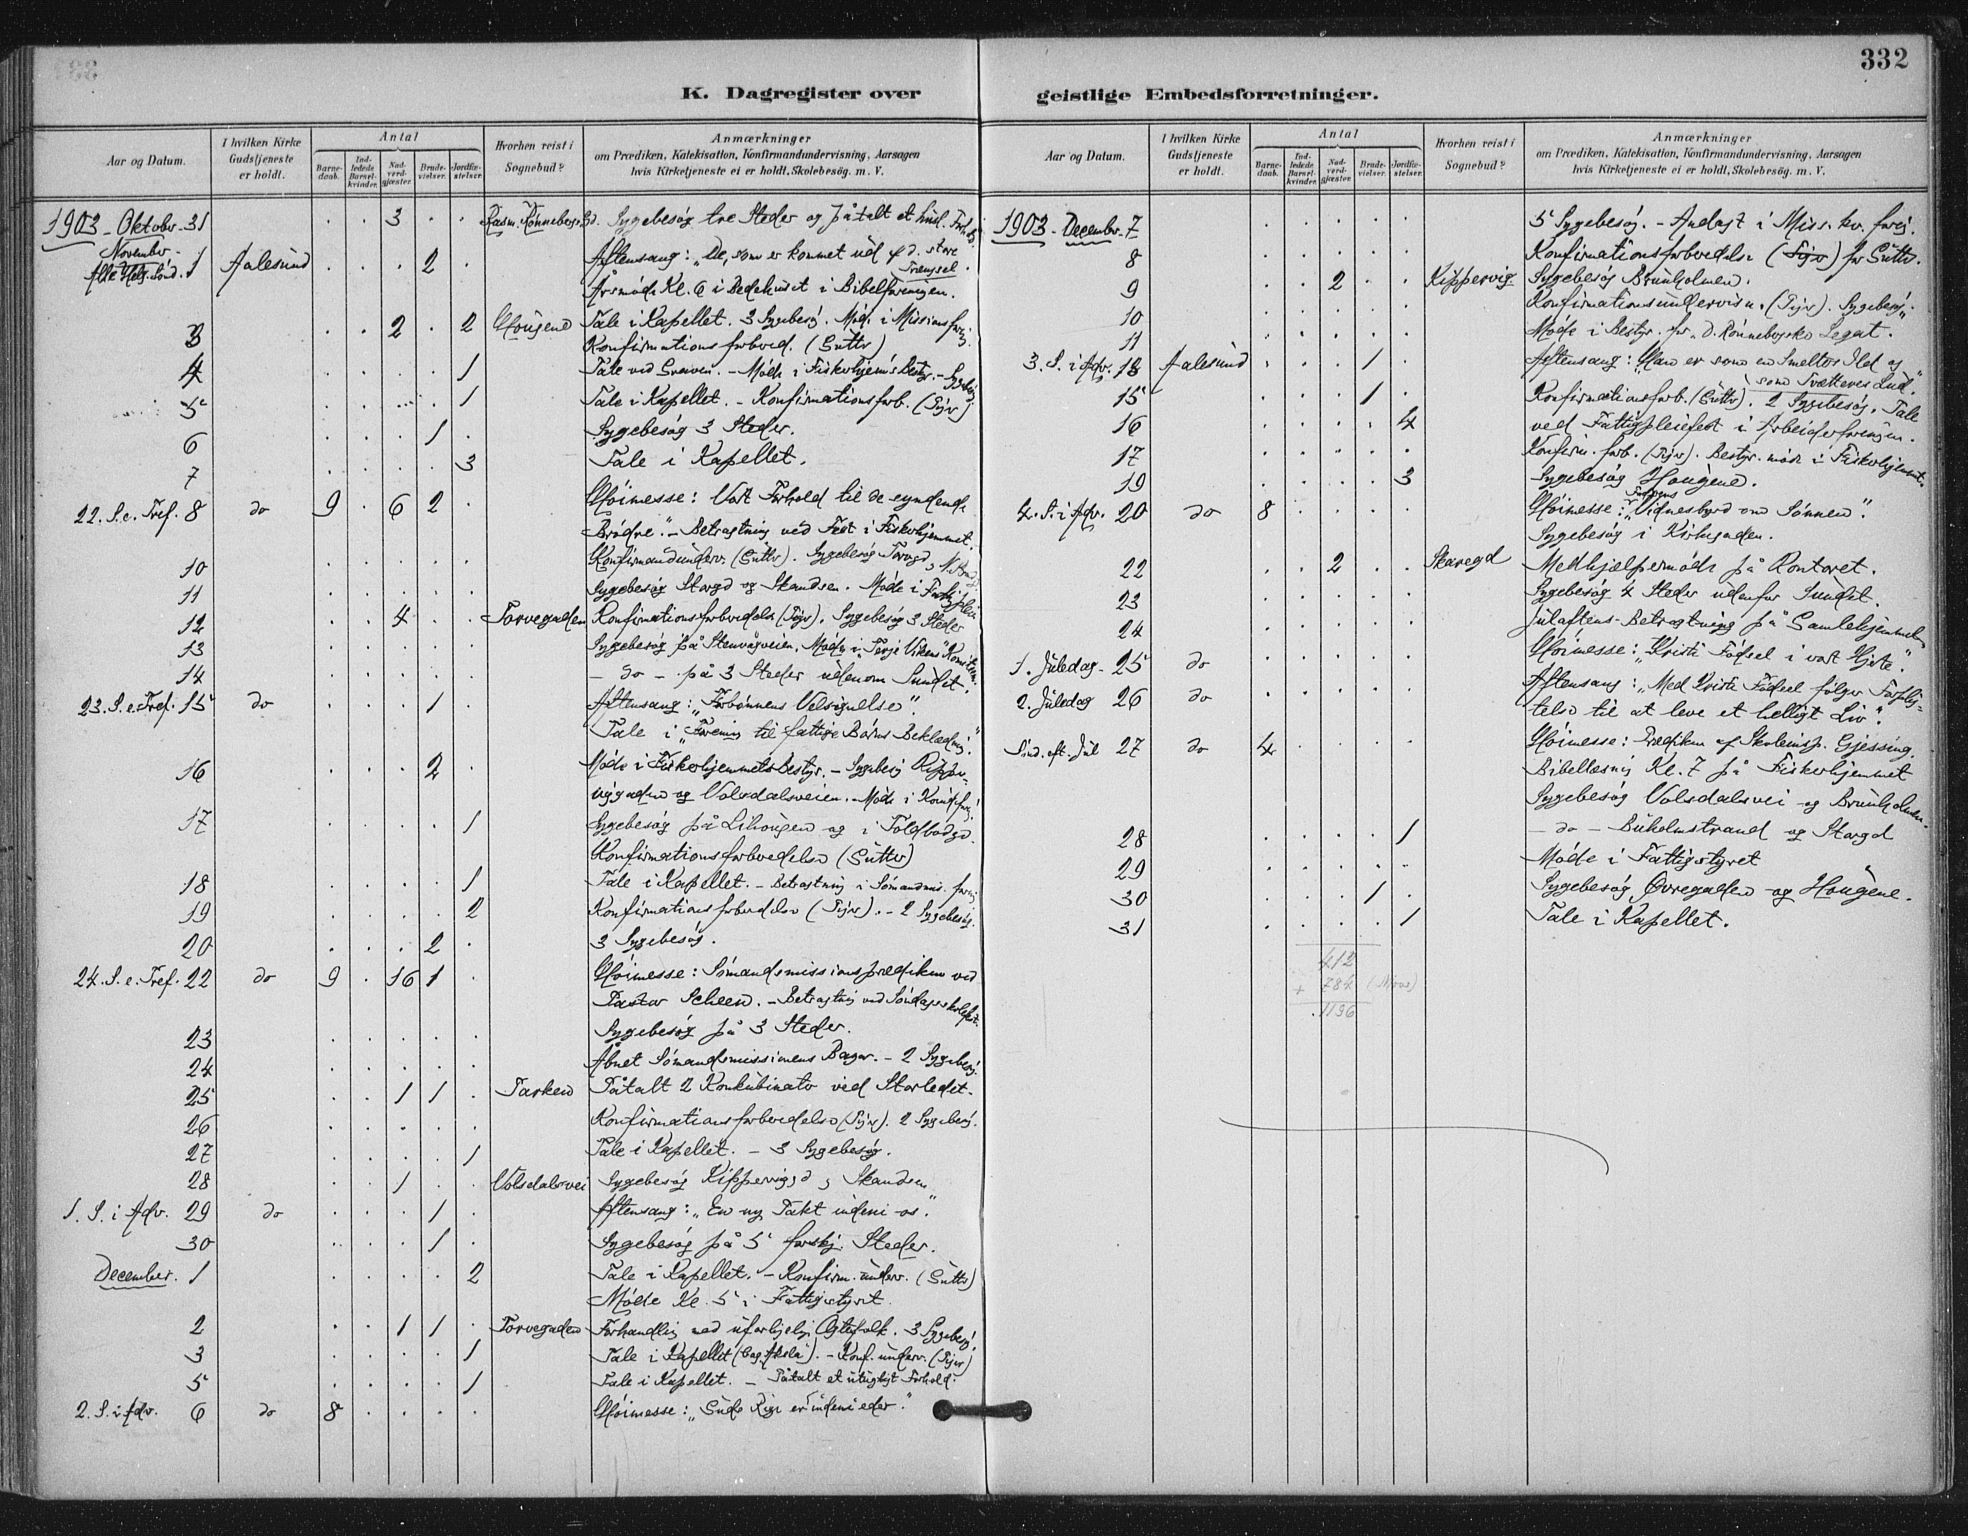 332
K. Dagregister over
Aar og Datum. I hvilken Kirke Gudstjeneste er holdt. Antal Hvorhen reist i Sognebud? Anmærkninger
Barne-daab. Ind-ledede Barsel-kvinder. Nad-verd-gjæster. Brude-vielser. Jordfæ-stelser. om Prædiken, Katekisation, Konfirmandundervisning, Aarsagen
hvis Kirketjeneste ei er holdt, Skolebesög. m. V.
1903 - Oktober 31 . . 3 . . Rasm. Rønnebergs Gd. Sygebesøg tre Steder og påtalt et
November -
Alle Helg. Sønd. 1 Aalesund . . . 2 . Aftensang: „De, som er kommet ud af d. store
Trængsel.
Årsmøde Kl. 6 i Bedehuset i Bibelforeningen.
3 . . 2 . 2 Hougene Tale i Kapellet. 3 Sygebesøg. Møde i Missionsforg.
Konfirmationsforbered. (Gutter)
4 . . . . 1 Tale ved Graven. - Møde i Fiskerhjemmets Bestyr. - Sygebesøg
5 . . . . 1 Tale i Kapellet. - Konfirmationsforb. (Piger)
6 . . . 1 . Sygebesøg 3 Steder.
7 . . . . 3 Tale i Kapellet.
22. S. e. Tref. 8 do 9 . 6 2 . Høimesse: Vort Forhold til de syndende
Brødre." - Betragtning ved Fest i Fiskerhjemmet.
10 . . . . . Konfirmandunderv. (Gutter). Sygebesøg Torvgd
11 . . . . . Sygebesøg Storgd og Skandsen. Møde i
12 . . 4 . . Torvegaden Konfirmationsforberedelse (Piger). Sygebesøg 3 Steder
13 . . . . . Sygebesøg på Stenvågveien. Møde i „Terje Vikens" Komiteen.
14 . . . . . - do - på 3 Steder udenom Sundet.
23. S. e. Tref. 15 do . . . 1 . Aftensang: „Forbønnens Velsignelse"
Tale i „Forening til fattige Børns Beklædning."
16 . . . 2 . Møde i Fiskerhjemmets Bestyr. - Sygebesøg Kipper-
viggaden og Volsdalsveien. Møde i
17 . . . . 1 Sygebesøg på Lihougen og i Toldbodgd.
Konfirmationsforberedelse (Gutter)
18 . . . . 1 Tale i Kapellet. - Betragtning i Sømandsmis. foreng
19 . . . . 2 Konfirmationsforberedelse (Piger). - 2 Sygebesøg.
20 . . . 2 . 3 Sygebesøg.
24. S. e. Tref. 22 do 9 . 16 1 . Høimesse: Sømandsmissionsprædiken ved
Pastor Scheen. - Betragtning ved Søndagsskolefest.
23 . . . . . Sygebesøg på 3 Steder.
24 . . . . . Åbnet Sømandsmissionens Bazar. - 2 Sygebesøg.
25 . . 1 1 . Parken Påtalt 2 Konkubinater ved Storledet.
26 . . . . . Konfirmationsforberedelse (Piger). 2 Sygebesøg.
27 . . . . 1 Tale i Kapellet. - 3 Sygebesøg.
28 . . 1 . . Volsdalsvei Sygebesøg Kipperviggd og Skandsen
1. S. i Adv. 29 do . . . 1 . Aftensang: „En ny Pakt indeni os."
30 . . . 1 . Sygebesøg på 5 forskj. Steder.
December. 1 . . . . 2 Tale i Kapellet. - Konfirm. underv. (Gutter)
Møde Kl. 5 i Fattigstyret.
2 . . 1 1 . Torvegaden Forhandling med uforligelige Ægtefolk. 3 Sygebesøg.
3 . . . . 1 Tale i Kapellet - Konf. underv. (Piger)
5 . . . . 1 Tale i Kapellet. - Påtalt et utugtigt Forhold.
2. S. i Adv. 6 do 8 . . . . Høimesse: „Guds Rige er indeni eder".
geistlige Embedsforretninger.
Aar og Datum. I hvilken Kirke Gudstjeneste er holdt. Antal Hvorhen reist i Sognebud? Anmærkninger
Barne-daab. Ind-ledede Barsel-kvinder. Nad-verd-gjæster. Brude-vielser. Jordfæ-stelser. om Prædiken, Katekisation, Konfirmandundervisning, Aarsagen
hvis Kirketjeneste ei er holdt, Skolebesög. m. V.
1903 - Decembr. 7 . . . . . 5 Sygebesøg. - Andagt i Miss. kv. foreg.
8 . . . . . Konfirmationsforberedelse (Piger) for Gutter.
9 . . 2 . . Kippervig Sygebesøg Brunholmen.
10 . . . . . Konfirmationsundervisn. (Piger). Sygebesøg.
11 . . . . . Møde i Bestyr. for „D. Rønnebergske Legat.
3. S. i Adv. 13 Aalesund . . . 1 . Aftensang: „Han er som en Smelters Ild og
som Tvætteres Lud."
15 . . . 1 . Konfirmationsforb. (Gutter). 2 Sygebesøg. Tale
16 . . . . 4 ved Fattigpleiefest i Arbeiderforeningen.
17 . . . . . Konfirm. forb. (Piger). Bestyr. møde i Fiskerhjemmet.
19 . . . . 3 Sygebesøg Hougene.
4. S. i Adv. 20 do 8 . . . . Høimesse: „Faderens Vidnesbyrd om Sønnen".
Sygebesøg i Kirkegaden.
22 . . 2 . . Skaregd Medhjælpermøde på Kontoret.
23 . . . . . Sygebesøg 4 Steder udenfor Sundet.
24 . . . . . Juleaftens-Betragtning på Gamlehjemmet
1. Juledag - 25 do . . . . . Høimesse: „Kristi Fødsel i vort Hjerte".
2. Juledag 26 do . . . . . Aftensang: „Med Kristi Fødsel følger Forplig-
telse til at leve et helligt Liv".
Sønd. eft. Jul 27 do 4 . . . . Høimesse: Prædiken af Skoleinsp. Gjessing.
Bibellæsning Kl. 7 på Fiskerhjemmet
Sygebesøg Volsdalsvei og Brunholmen.
28 . . . . 1 - do - Buholmstrand og Storgd
29 . . . . . Møde i Fattigstyret
30 . . . 1 . Sygebesøg Øvregaden og Hougene.
31 . . . . 1 Tale i Kapellet.
412
+ 784
1196